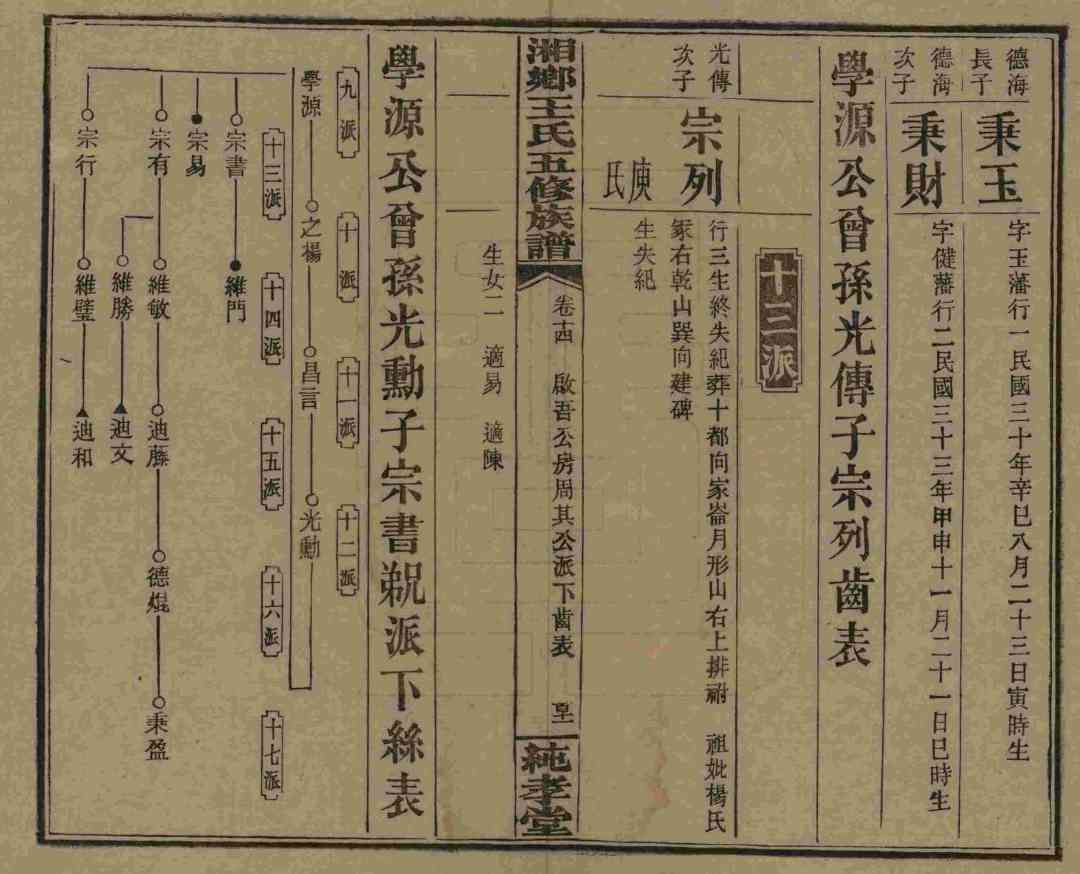 德海
長子
秉玉
字玉藩行一民國三十年辛巳八月二十三日寅時生
德海
次子
秉財
字健藩行二民國三十三年甲申十一月二十一日巳時生
學源公曾孫光傳子宗列齒表
十三派
光傳
次子
宗列
行三生終失紀葬十都向家崙月形山右上排祔 祖妣楊氏
冢右乾山巽向建碑
庾氏
生失紀
湘鄉王氏五修族譜
卷十四 啟吾公房周其公派下齒表
純孝堂
生女二 適易 適陳
學源公曾孫光勳子宗書 派下絲表
九派
十派
十一派
十二派
學源
之楊
昌言
光勳
十三派
十四派
十五派
十六派
十七派
宗書
維門
宗易
宗有
維敏
迪藤
德焜
秉盈
維勝
迪文
宗行
維璧
迪和